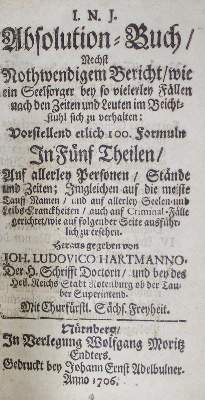 I. N. J.
Absolution-Buch/
Nechst
Nothwendigem Bericht/wie
ein Seelsorger bey so vielerley Fällen
nach den Zeiten und Leuten im Beicht-
stuhl sich zu verhalten:
Vorstellend etlich 100. Formuln
In Fünf Theilen/
Auf allerley Personen/ Stände
und Zeiten; Imgleichen auf die meiste
Tauff Namen/ und auf allerley Seelen-und
Leibs-Kranckheiten/ auch auf Criminal-Fälle
gerichtet/wie auf folgender Seite ausführ-
lich zu ersehen.
Heraus gegeben von
JOH. LUDOVICO HARTMANNO.
Der H. Schrifft Doctorn/ und bey des
Heil. Reichs Stadt Rotenburg ob der Tau-
ber Superintend.
Mit Churfürstl. Sächs. Freyheit.
Nürnberg/
In Verlegung Wolfgang Moritz
Endters.
Gedruckt bey Johann Ernst Adelbulner.
Anno 1706.